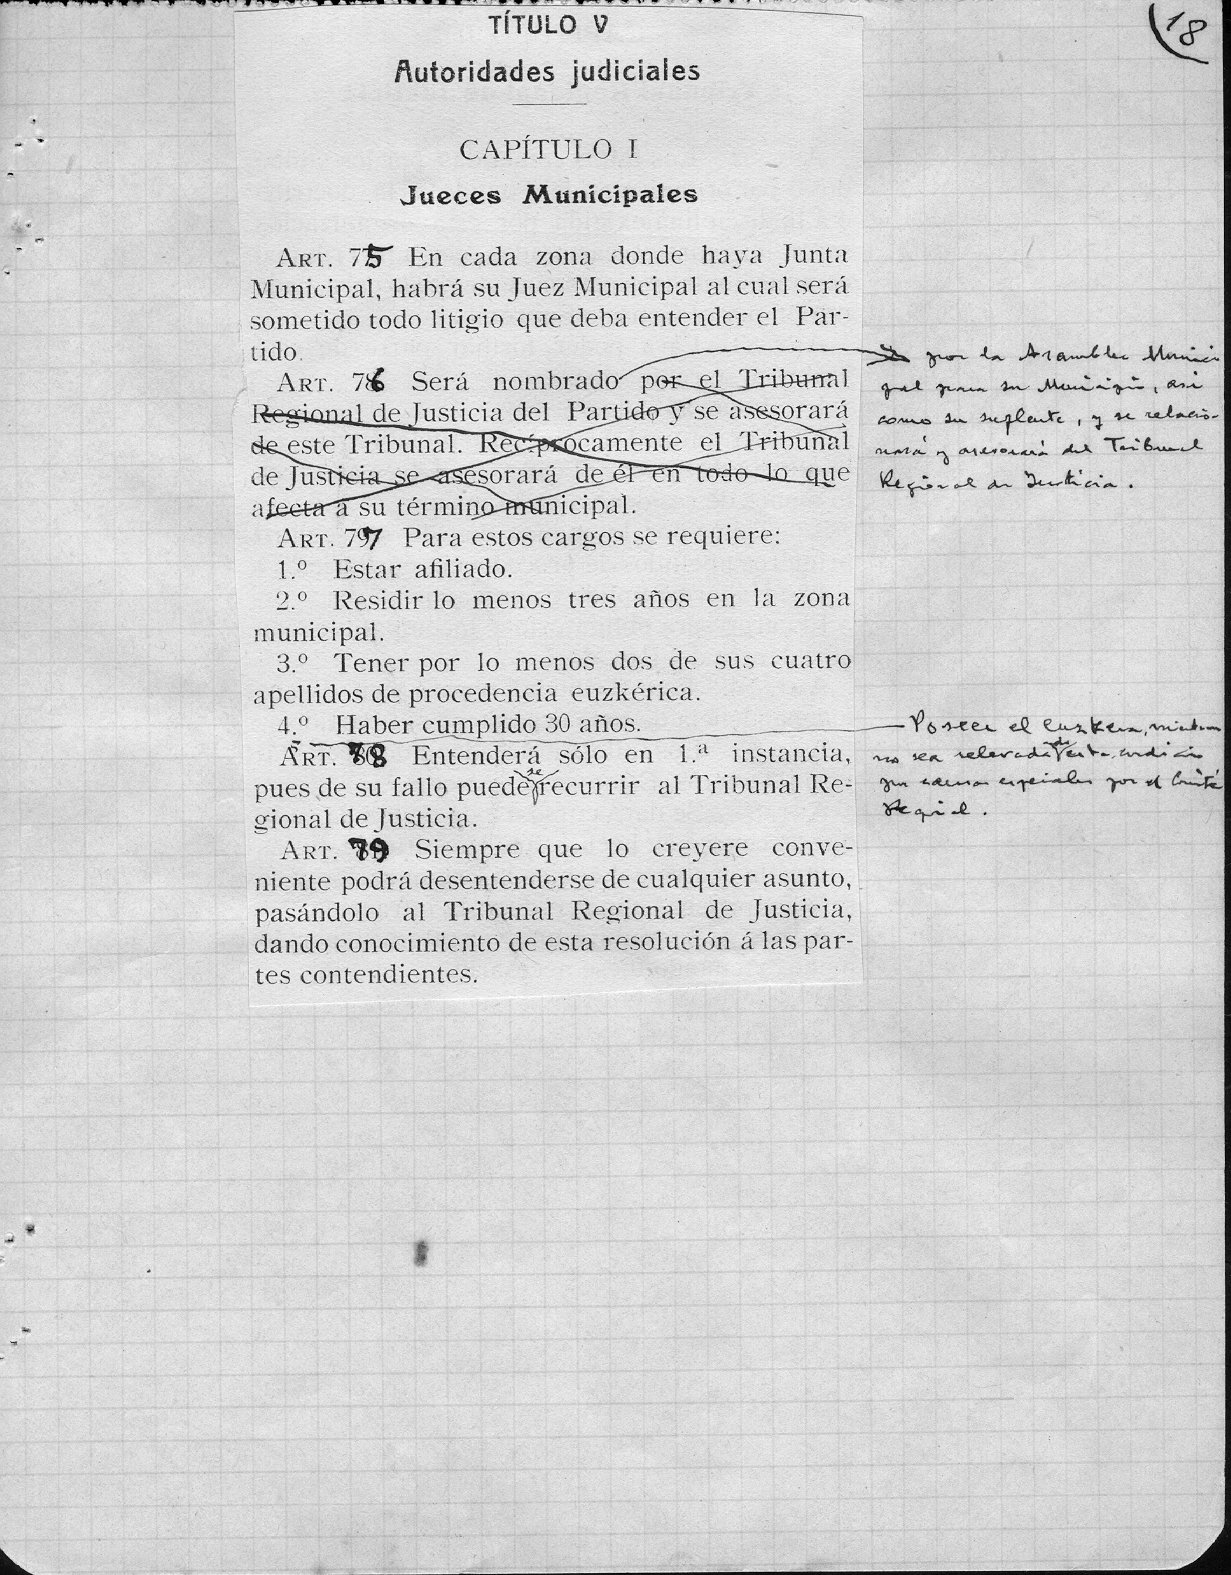 18
TÍTULO V
Autoridades judiciales
CAPÍTULO I
Jueces Municipales
ART. 75 En cada zona donde haya Junta
Municipal, habrá su Juez Municipal al cual será
sometido todo litigio que deba entender el Par-
tido.
ART. 76 Será nombrado por el Tribunal
Regional de Justicia del Partido y se asesorará
de este Tribunal. Recíprocamente el Tribunal
de Justicia se asesorará de él en todo lo que
afecta a su término municipal.
por la Asamblea Munici
pal para su Municipio, así
como su suplente, y se relacio-
nará y asesorará del Tribunal
Regional de Justicia.
ART. 77 Para estos cargos se requiere:
1.º Estar afiliado.
2.º Residir lo menos tres años en la zona
municipal.
3.º Tener por lo menos dos de sus cuatro
apellidos de procedencia euzkérica.
4.º Haber cumplido 30 años.
5.º
Poseer el euzkera, mientras
no sea relevado de esta condición
por causas especiales por el Comité
Regional.
ART. 78 Entenderá sólo en 1.ª instancia,
pues de su fallo puede se recurrir al Tribunal Re-
gional de Justicia.
ART. 79 Siempre que lo creyere conve-
niente podrá desentenderse de cualquier asunto,
pasándolo al Tribunal Regional de Justicia,
dando conocimiento de esta resolución á las par-
tes contendientes.